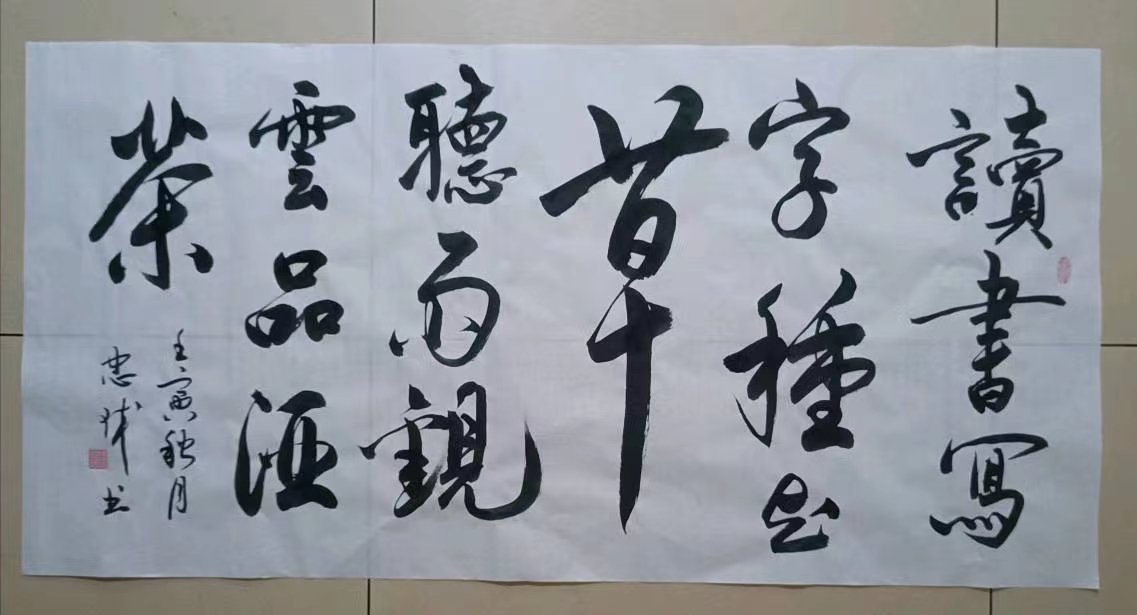 讀書寫
字種花
草
聽雨觀
雲品酒
茶
壬寅秋月
忠城书